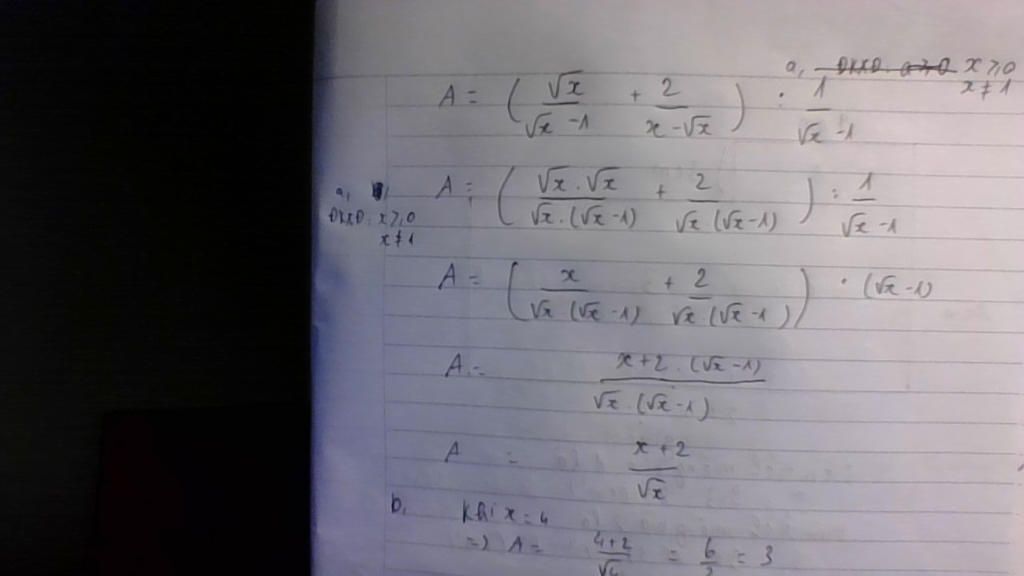 a, ĐKXĐ: a≥0 x ≥ 0
x ≠ 1
A = ( √x / (√x - 1) + 2 / (x - √x) ) : 1 / (√x - 1)
a,
ĐKXĐ: x ≥ 0
x ≠ 1
A = ( √x . √x / √x . (√x - 1) + 2 / √x (√x - 1) ) : 1 / (√x - 1)
A = ( x / √x . (√x - 1) + 2 / √x . (√x - 1) ) . (√x - 1)
A = x + 2 . (√x - 1) / √x . (√x - 1)
A = x + 2 / √x
b, Khi x = 4
=> A = 4+2 / √4 = 6 / 2 = 3